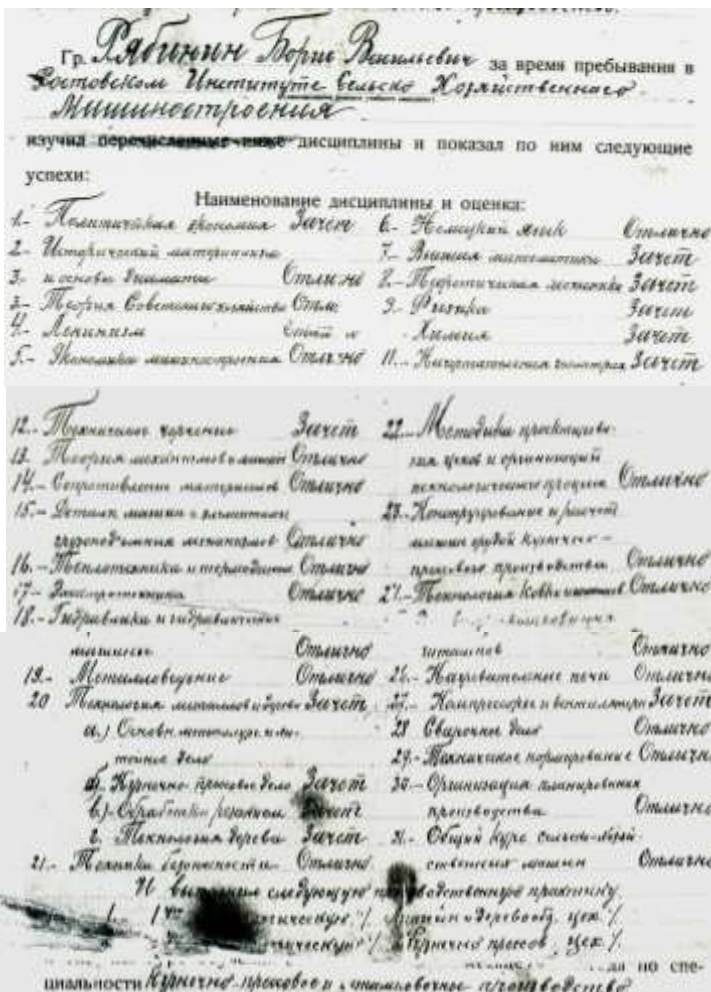 Гр. Рябинин Борис Васильевич за время пребывания в
Ростовском Институте Сельско Хозяйственнаго
Машиностроения
изучил перечисленные ниже дисциплины и показал по ним следующие
успехи:
Наименование дисциплины и оценка:
1.- Политическая экономия Зачет
2 - Исторический материализм
3. и основы диамата Отлично
3 - Теория Советского хозяйства Отлич
4.- Ленинизм
5.- Экономика машиностроения Отлично
6.- Немецкий язык Отлично
7.- Высшая математика Зачет
8.- Теоретическая механика Зачет
9.- Физика Зачет
- Химия Зачет
11.- Начертательная геометрия Зачет
12.- Техническое черчение Зачет
13. Теория механизмов и машин Отлично
14.- Сопротивление материалов Отлично
15.- Детали машин и элементы
грузоподъемных механизмов Отлично
16.- Теплотехника и термодинам Отлично
17 - Электротехника Отлично
18.- Гидравлика и гидравлические
машины Отлично
19.- Металловедение Отлично
20 Технология металлов и дерева Зачет
а.) Основы металлург и ли-
тейное дело
б. Кузнечно прессовое дело Зачет
в.) Обработка резанием Зачет
г. Технология дерева Зачет
21.- Техника безопасности Отлично
22.- Методика проектирова-
ния цехов и организаций
технологического процесса Отлично
23.- Конструирование и расчет
машин орудий кузнечно-
прессового производства Отлично
24.- Технология Ковки и штамповки Отлично
штампов Отлично
26.- Нагревательные печи Отлично
27.- Компрессоры и вентиляторы Зачет
28 Сварочное дело Отлично
29.- Техническое нормирование Отлично
30.- Организация планирования
производства Отлично
31.- Общий курс сельско-хозяй-
ственных машин Отлично
И выполнил следующую производственную практику
1. Литейн и деревообд. цех
Кузнечно прессов. цех
по спе-
циальности Кузнечно-прессовое и штамповочное производство